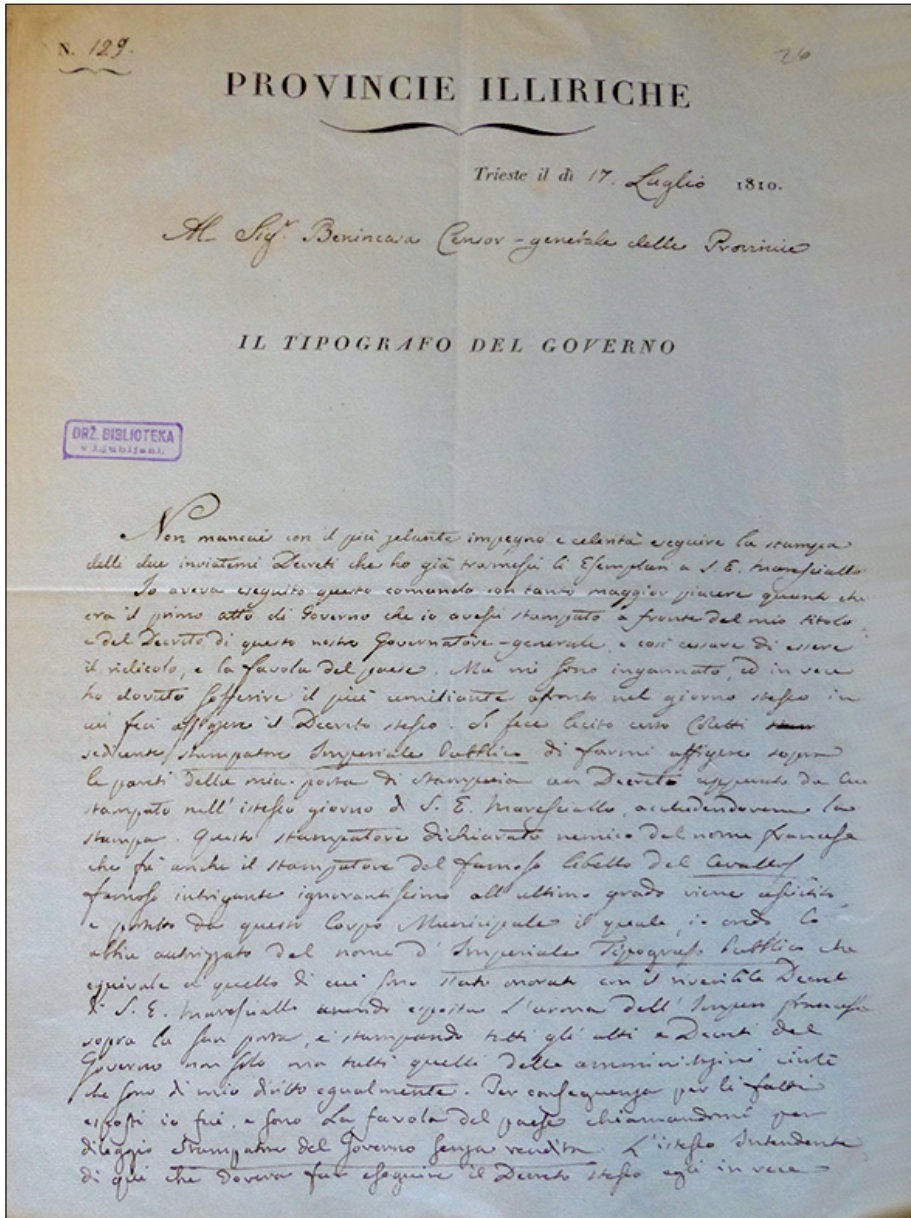 N. 129.
26
PROVINCIE ILLIRICHE
Trieste il dì 17. Luglio 1810.
Al Sigr. Benincasa Censor-generale delle Provincie
IL TIPOGRAFO DEL GOVERNO
DRŽ. BIBLIOTEKA
v Ljubljani.
Non mancai con il più zelante impegno e celerità eseguire la stampa
delli due inviatemi Decreti che ho già trasmessi li Esemplari a S. E. Maresciallo
Io aveva eseguito questo comando con tanto maggior piacere quanto che
era il primo atto di Governo che io avessi stampato a fronte del mio titolo
e del Decreto di questo nostro Governatore-generale, e così cessare di essere
il ridicolo, e la favola del paese. Ma mi sono ingannato, ed in vece
ho dovuto sofferire il più umiliante afronto nel giorno stesso in
cui feci affigere il Decreto stesso. Si fece lecito certo Coletti
sedicente stampatore Imperiale Pubblico di farmi affigere sopra
le pareti della mia porta di Stamperia un Decreto appunto da lui
stampato nell'istesso giorno di S. E. Maresciallo, accludendovene la
stampa. Questo stampatore dichiarato nemico del nome francese
che fù anche il stampatore del famoso libello del Cevallos
famoso intrigante ignorantissimo all'ultimo grado viene assistito
e da questo Corpo Municipale il quale, io credo lo
abbia autorizzato del nome d'Imperiale Tipografo Pubblico che
equivale a quello di cui sono stato onorato con il riveribile Decret
di S. E. Maresciallo avendo esposta l'arma dell'Imper francese
sopra la sua porta, e stampando tutti gli atti e Decreti del
Governo non solo ma tutti quelli delle amministrazioni civile
che sono di mio diritto egualmente. Per conseguenza per li fatti
esposti io fui, e sono la favola del paese chiamandomi per
dileggio Stampatore del Governo senza vendita. L'istesso Intendente
di qui che doveva far eseguire il Decreto stesso egli in vece